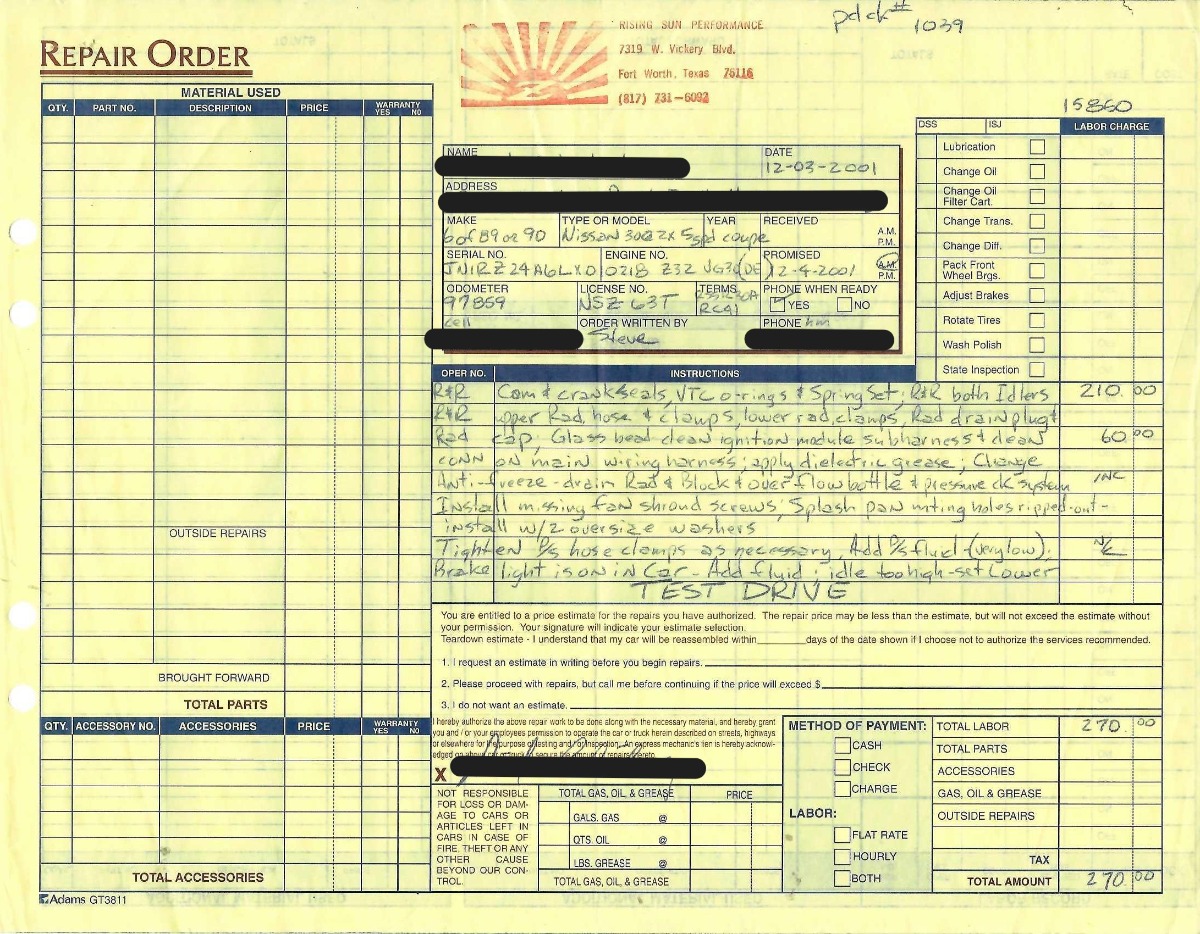 pd ck# 1039
RISING SUN PERFORMANCE
7319 W. Vickery Blvd.
Fort Worth, Texas 76116
(817) 731-6092
REPAIR ORDER
15860
MATERIAL USED
QTY. PART NO. DESCRIPTION PRICE WARRANTY YES NO
DSS ISJ LABOR CHARGE
Lubrication
Change Oil
Change Oil Filter Cart.
Change Trans.
Change Diff.
Pack Front Wheel Brgs.
Adjust Brakes
Rotate Tires
Wash Polish
State Inspection
NAME DATE
12-03-2001
ADDRESS
MAKE TYPE OR MODEL YEAR RECEIVED A.M. P.M.
6 of 89 or 90 Nissan 300ZX 5spd coupe
SERIAL NO. ENGINE NO. PROMISED A.M. P.M.
JN1RZ24A6LX0 0218 Z32 VG30(DE) 12-4-2001
ODOMETER LICENSE NO. TERMS PHONE WHEN READY
97859 NSZ 63T YES NO
cell ORDER WRITTEN BY PHONE hm
Steve
OPER NO. INSTRUCTIONS
R&R Cam & crank seals, VTC o-rings & Spring Set; R&R both Idlers 210.00
R&R upper Rad. hose & clamps, lower rad. clamps, Rad drain plug &
Rad cap; Glass bead clean ignition module subharness & clean 60.00
conn on main wiring harness; apply dielectric grease; Change
Anti-freeze-drain Rad & Block & overflow bottle & pressure ck system INC
Install missing fan shroud screws; Splash pan mting holes ripped-out-
install w/2 oversize washers
Tighten P/s hose clamps as necessary, Add P/s fluid-(very low); N/C
Brake light is on in Car - Add fluid; idle too high-set Lower
TEST DRIVE
OUTSIDE REPAIRS
BROUGHT FORWARD
TOTAL PARTS
You are entitled to a price estimate for the repairs you have authorized. The repair price may be less than the estimate, but will not exceed the estimate without
your permission. Your signature will indicate your estimate selection.
Teardown estimate - I understand that my car will be reassembled within________days of the date shown if I choose not to authorize the services recommended.
1. I request an estimate in writing before you begin repairs.
2. Please proceed with repairs, but call me before continuing if the price will exceed $
3. I do not want an estimate.
QTY. ACCESSORY NO. ACCESSORIES PRICE WARRANTY YES NO
TOTAL ACCESSORIES
I hereby authorize the above repair work to be done along with the necessary material, and hereby grant
you and / or your employees permission to operate the car or truck herein described on streets, highways
or elsewhere for the purpose of testing and/or inspection. An express mechanic's lien is hereby acknowl-
edged on above car or truck to secure the amount of repairs thereto.
X
NOT RESPONSIBLE
FOR LOSS OR DAM-
AGE TO CARS OR
ARTICLES LEFT IN
CARS IN CASE OF
FIRE, THEFT OR ANY
OTHER CAUSE
BEYOND OUR CON-
TROL.
TOTAL GAS, OIL, & GREASE PRICE
GALS. GAS @
QTS. OIL @
LBS. GREASE @
TOTAL GAS, OIL, & GREASE
METHOD OF PAYMENT:
CASH
CHECK
CHARGE
LABOR:
FLAT RATE
HOURLY
BOTH
TOTAL LABOR 270.00
TOTAL PARTS
ACCESSORIES
GAS, OIL & GREASE
OUTSIDE REPAIRS
TAX
TOTAL AMOUNT 270.00
Adams GT3811